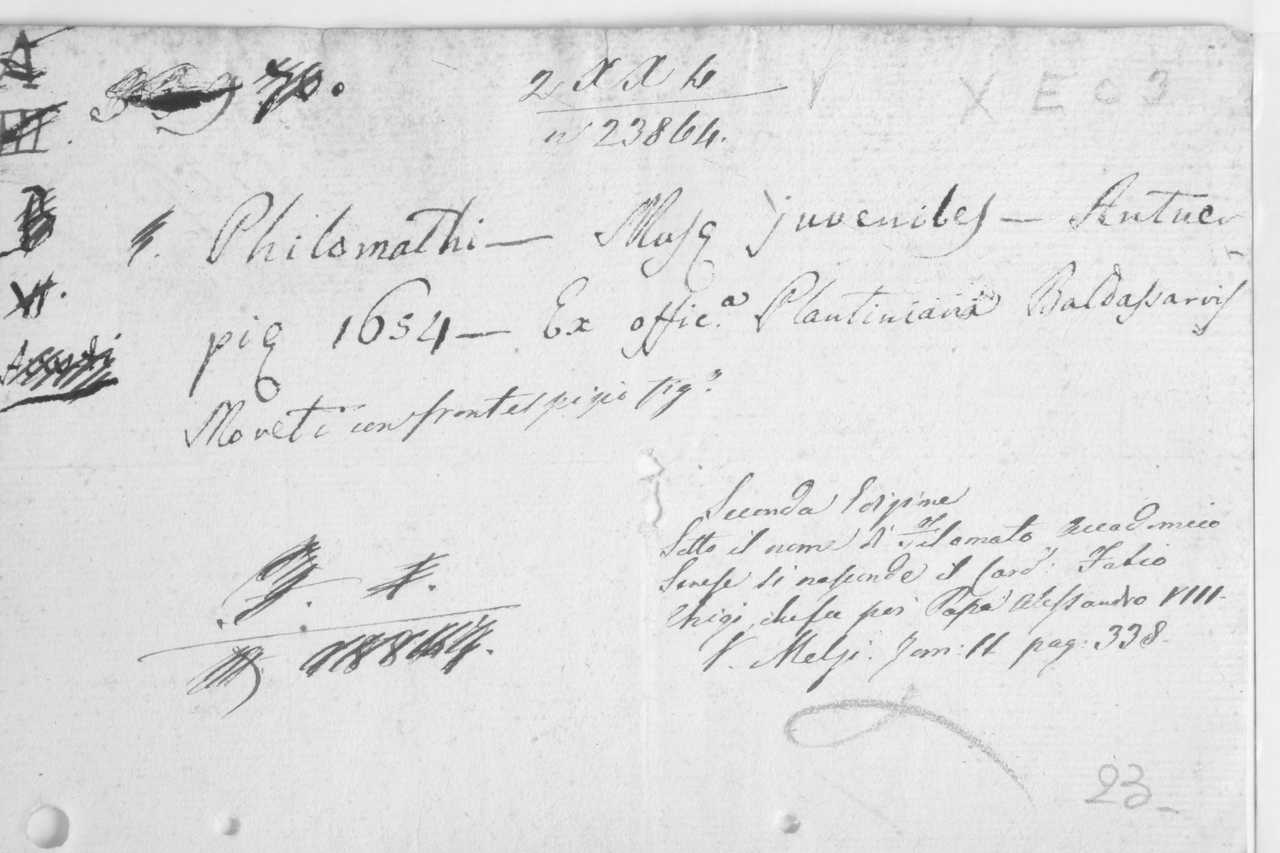 A
III.
B
XI.
70.
2 X X 4
n° 23864.
V X E C 3
Philomathi — Musę juveniles — Antuer
pię 1654 — Ex offic.ª Plantiniana Baldassaris
Moreti con frontespizio fig.º
Seconda Edizione
Sotto il nome di Filomato Accademico
Senese si nasconde il Card: Fabio
Chigi, che fu poi Papa Alessandro VIII.
V. Melzi. Tom: II pag: 338.
23